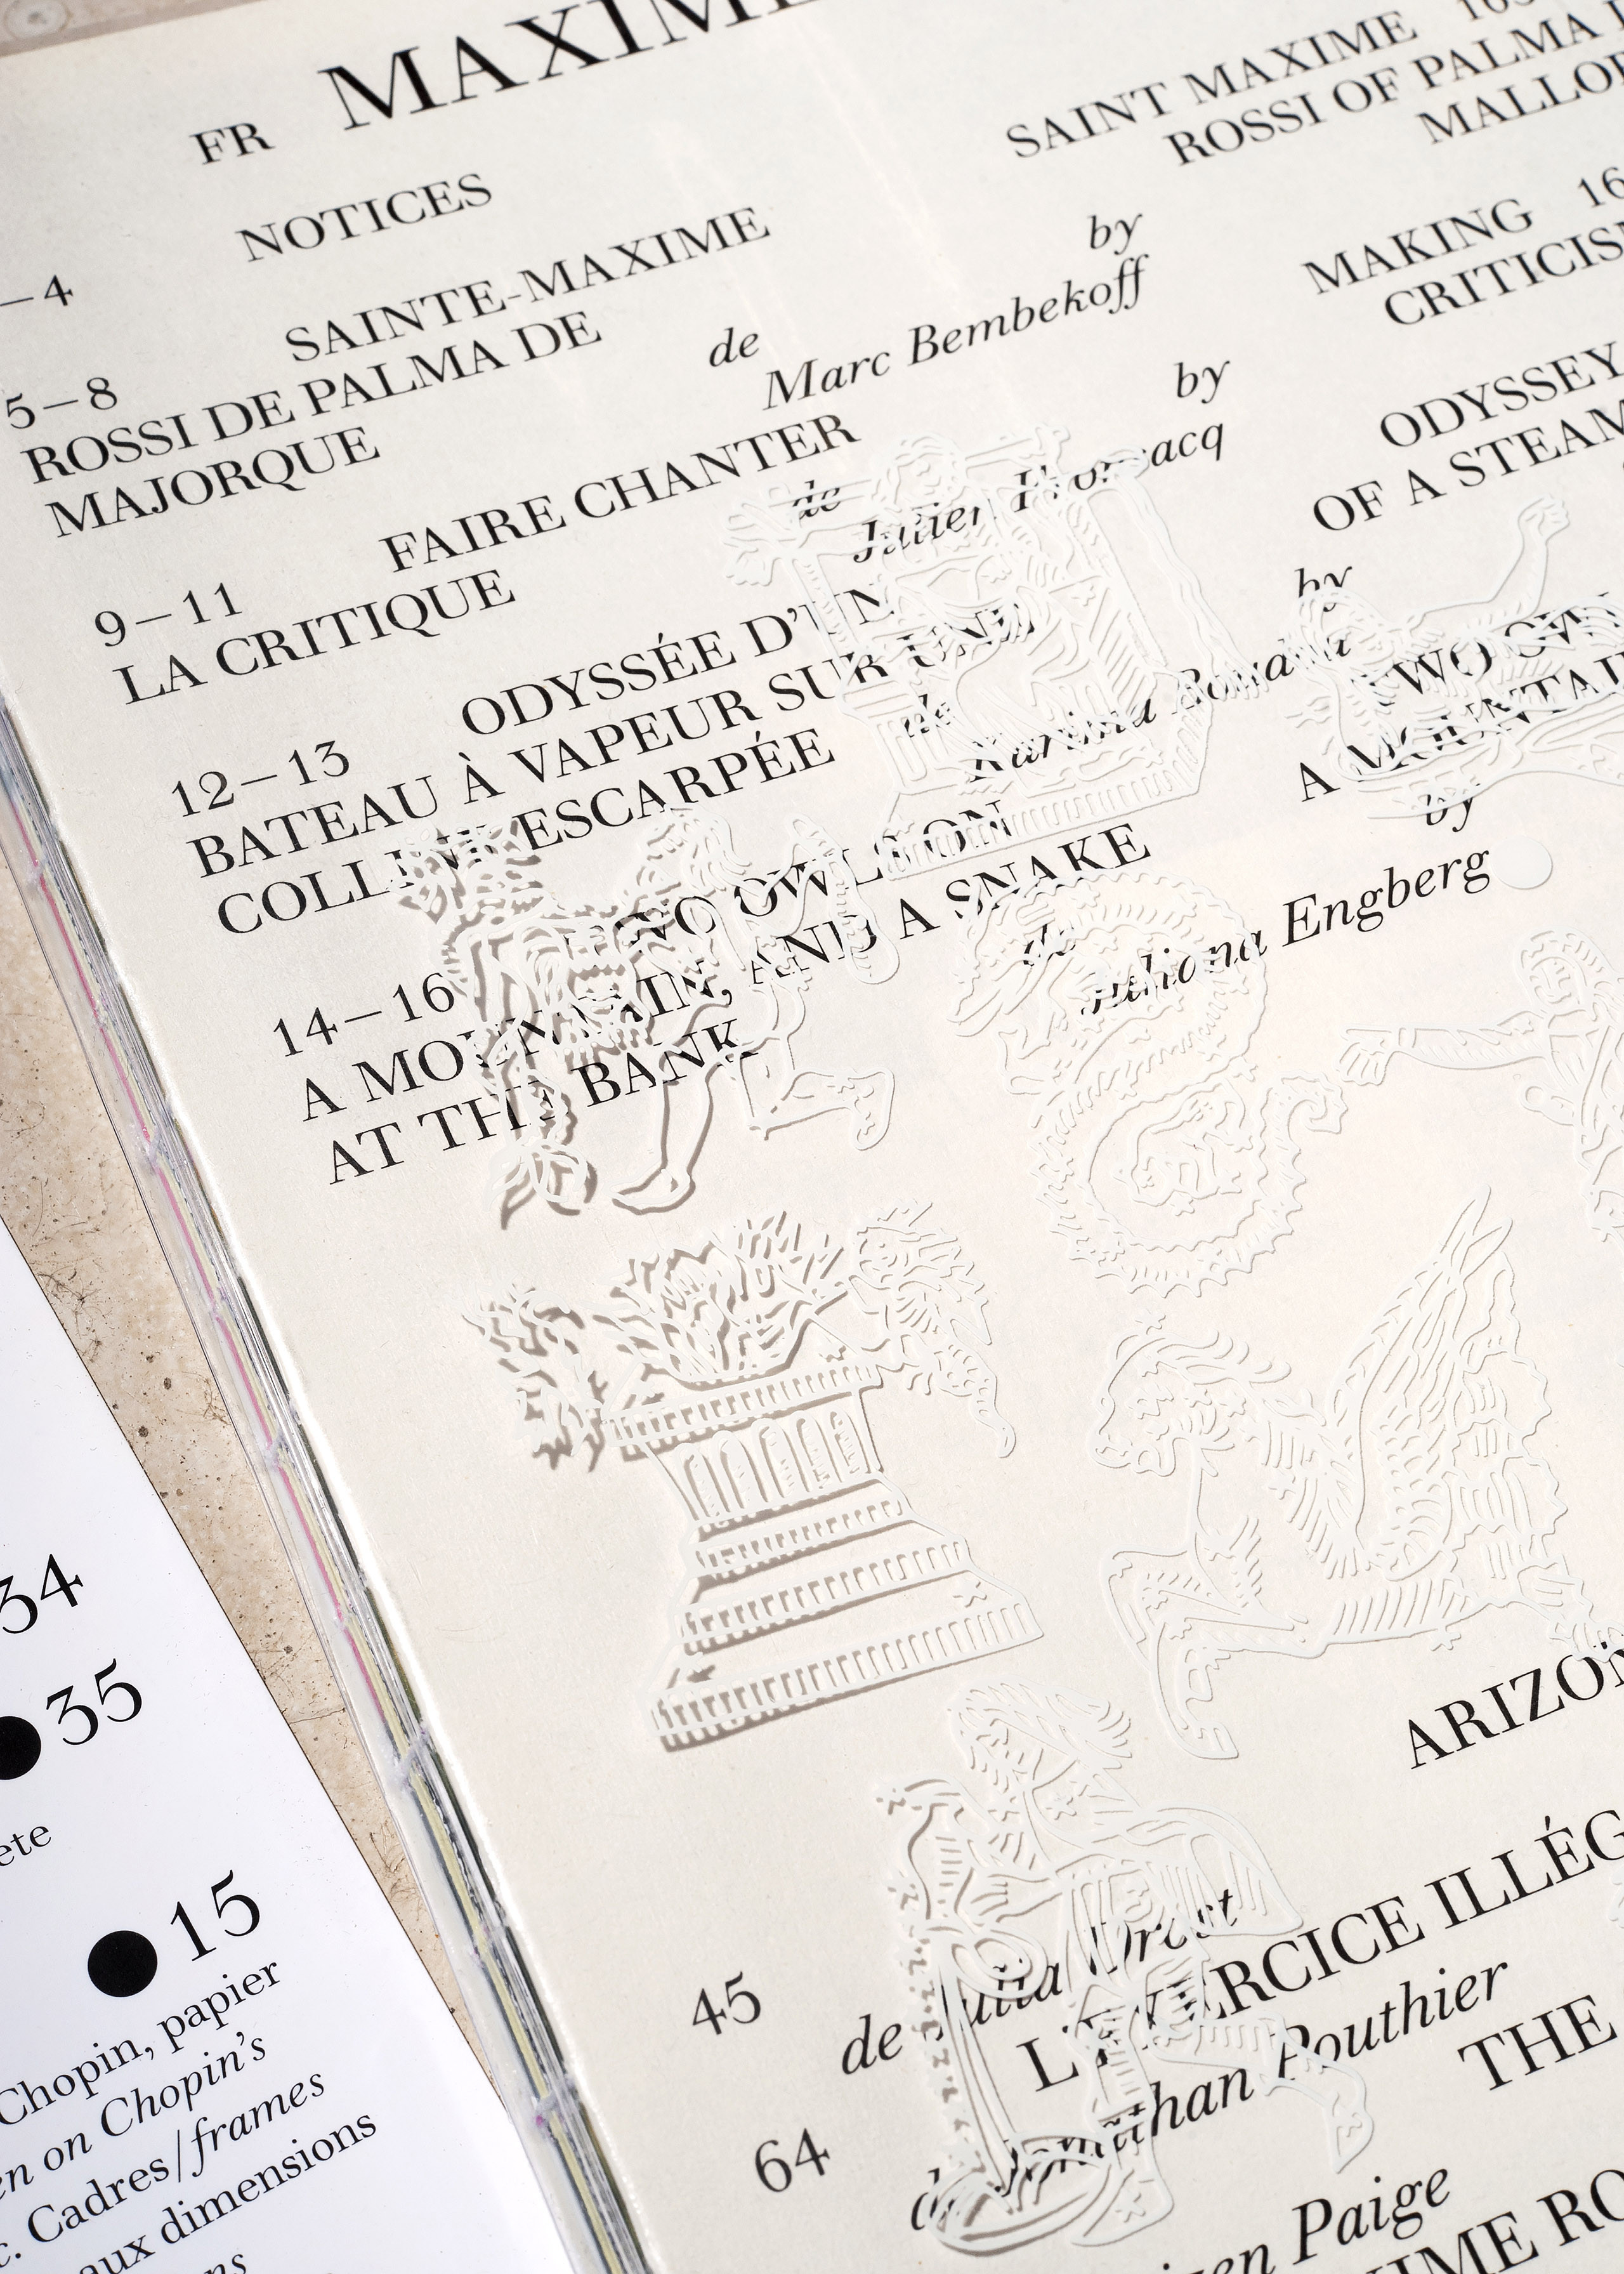 FR MAXIM
NOTICES
–4
SAINTE-MAXIME
5–8
ROSSI DE PALMA DE
MAJORQUE
de
Marc Bembekoff
FAIRE CHANTER
9–11
LA CRITIQUE
de
Julien
ODYSSÉE D'UN
12–13
BATEAU À VAPEUR SUR UNE
COLLINE ESCARPÉE
de
TWO OWLS ON
14–16
A MOUNTAIN, AND A SNAKE
AT THE BANK
de
Juliana Engberg
SAINT MAXIME
ROSSI OF PALMA
MALLOR
by
MAKING 16
CRITICIS
by
ODYSSEY
OF A STEAM
by
TWO OW
A MOUNTAI
by
ARIZO
45
de
L'EXERCICE ILLÉG
64
de Jonathan Pouthier
THE
Paige
IME RO
34
● 35
ete
● 15
Chopin, papier
en on Chopin's
c. Cadres/frames
aux dimensions
ns